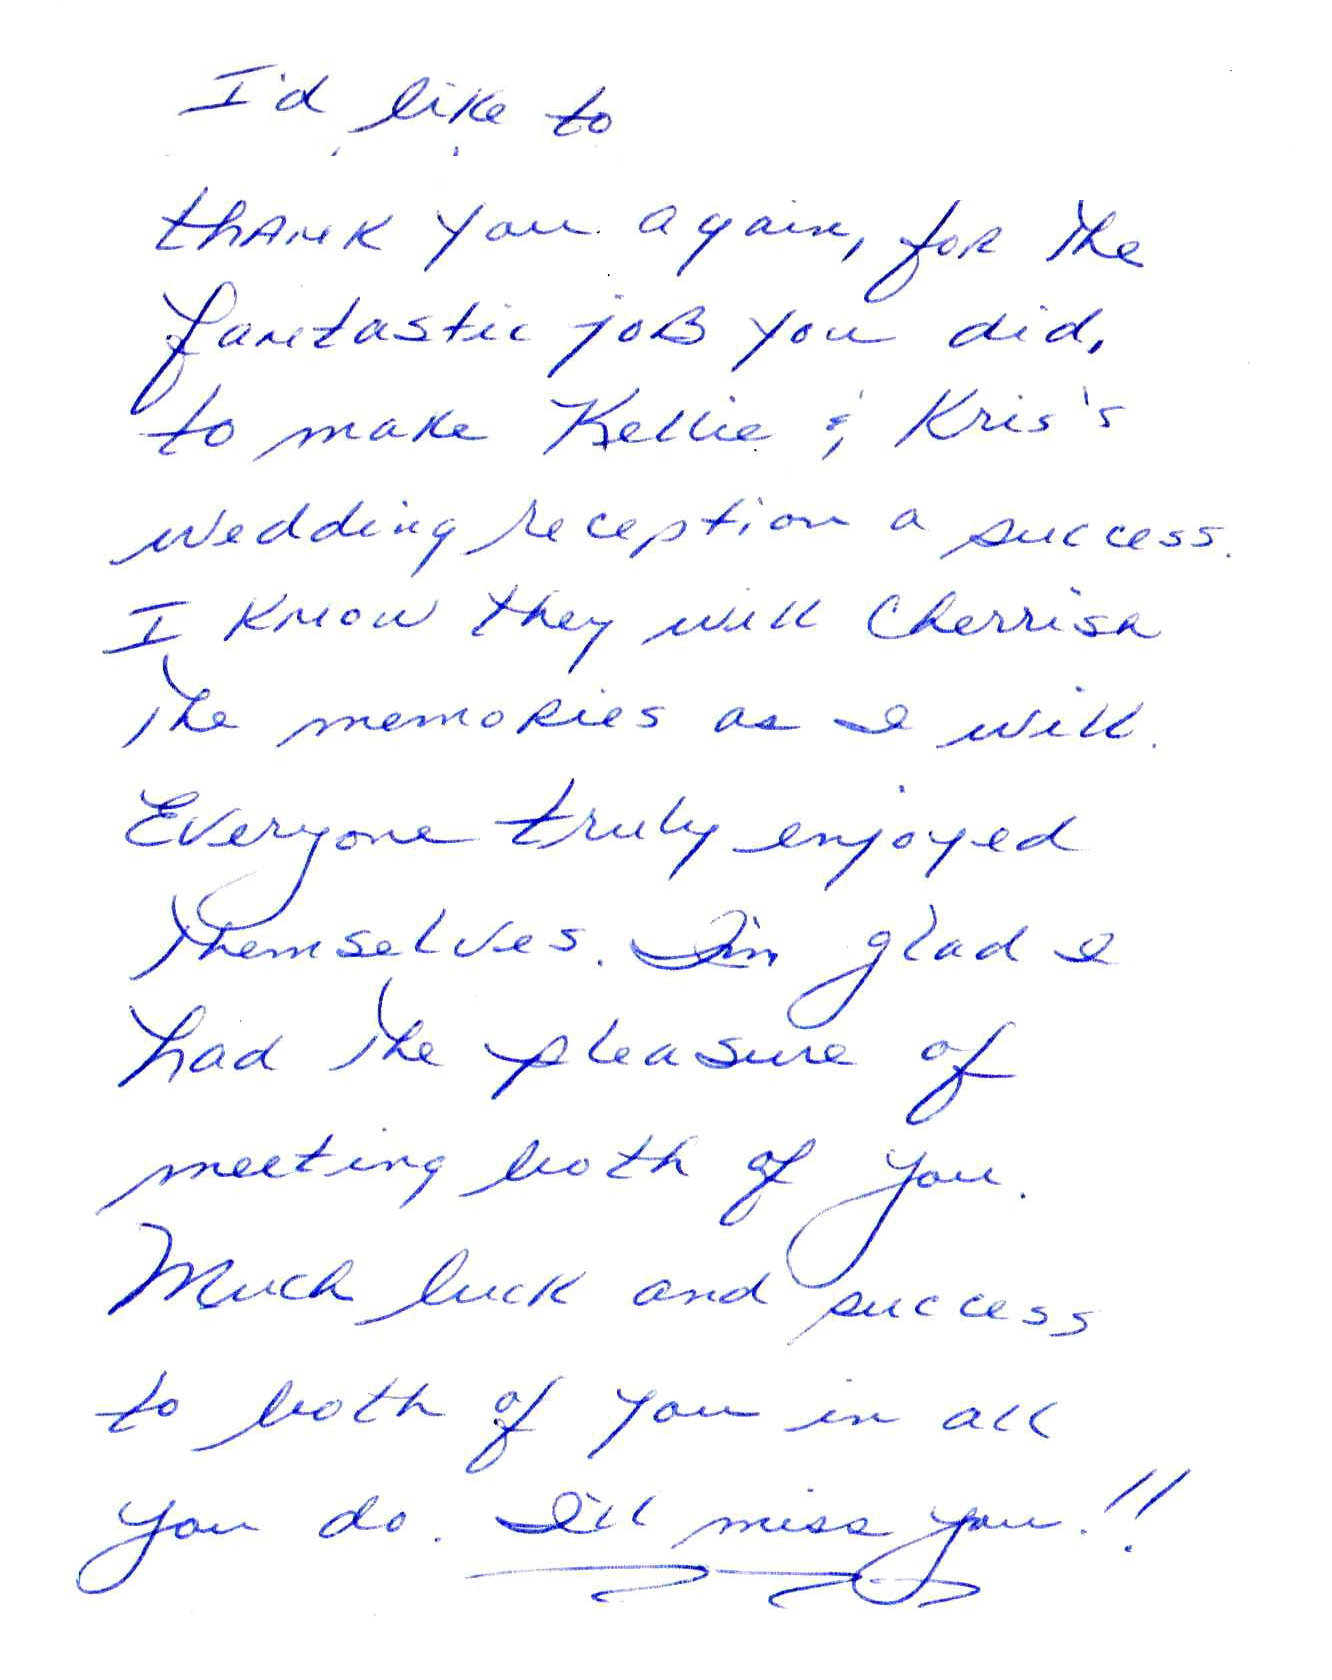 I'd like to
thank you again, for the
fantastic job you did,
to make Kellie & Kris's
wedding reception a success.
I know they will Cherrish
the memories as I will.
Everyone truly enjoyed
themselves. I'm glad I
had the pleasure of
meeting both of you.
Much luck and success
to both of you in all
you do. I'll miss you!!